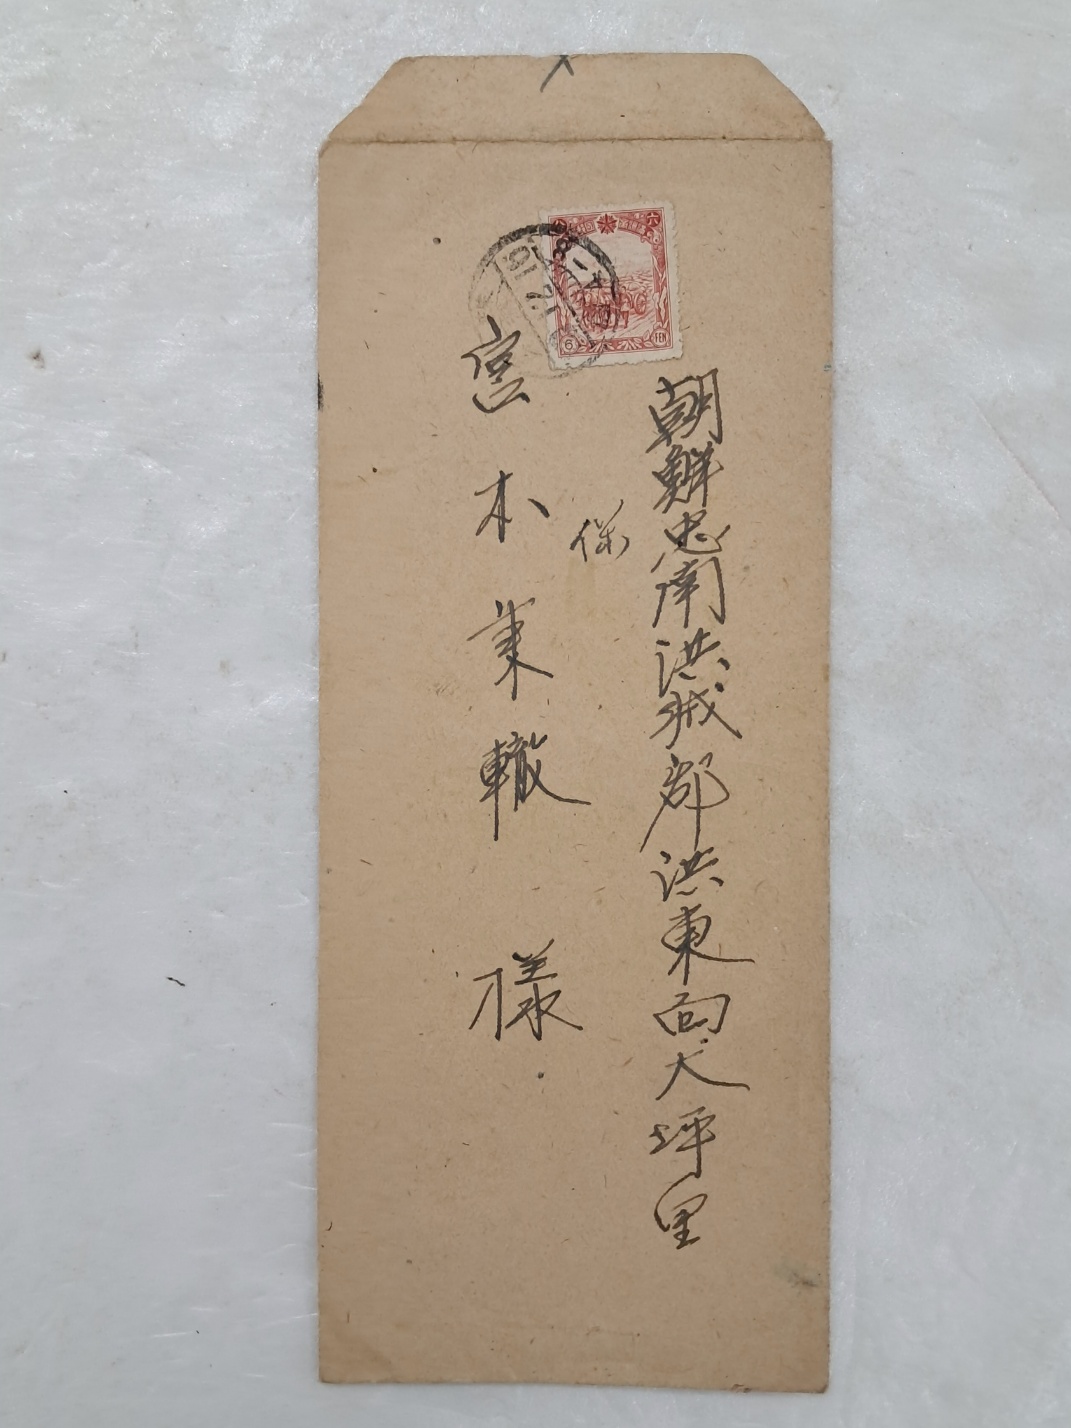 朝鮮忠南洪城郡洪東面大坪里
宮本秉轍 様
6 FEN